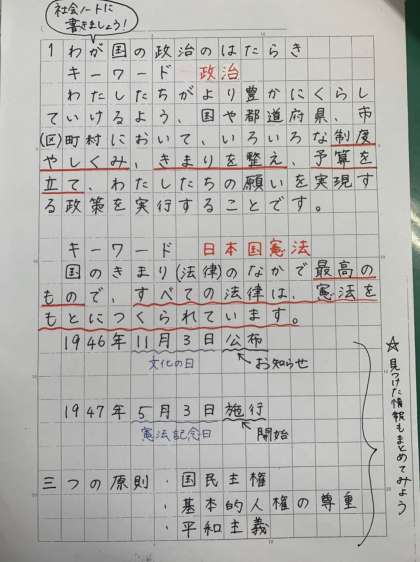 社会ノートに
書きましょう！
1 わが国の政治のはたらき
キーワード 政治
わたしたちがより豊かにくらし
ていけるよう、国や都道府県、市
(区)町村において、いろいろな制度
やしくみ、きまりを整え、予算を
立て、わたしたちの願いを実現す
る政策を実行することです。
キーワード 日本国憲法
国のきまり(法律)のなかで最高の
もので、すべての法律は、憲法を
もとにつくられています。
1946年11月3日公布
文化の日 お知らせ
1947年5月3日施行
憲法記念日 開始
三つの原則・国民主権
・基本的人権の尊重
・平和主義
☆見つけた情報もまとめてみよう